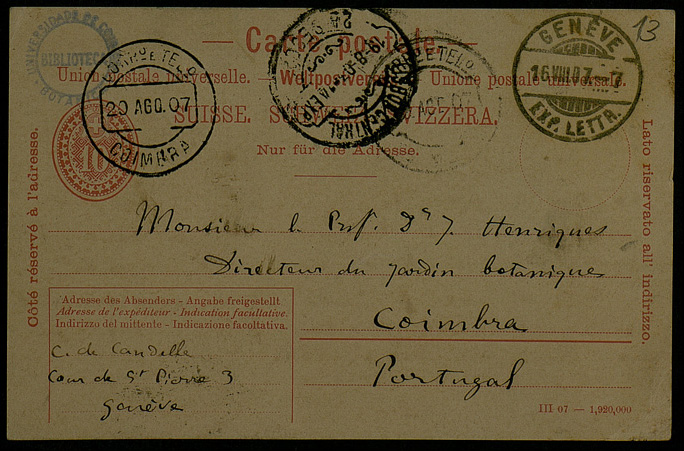 13
UNIVERSIDADE DE COIMBRA
BIBLIOTECA
— Carte postale. —
Union postale universelle. — Weltpostverein. — Unione postale universale.
SUISSE. SCHWEIZ. SVIZZERA.
Nur für die Adresse.
GENÈVE
16.VIII.07. — 7
EXP. LETTR.
20 AGO. 07
COIMBRA
CENTRAL
10
Côté réservé à l'adresse.
Lato riservato all' indirizzo.
Monsieur le Prof. Dr J. Henriques
Directeur du Jardin botanique
Coimbra
Portugal
Adresse des Absenders - Angabe freigestellt
Adresse de l'expéditeur - Indication facultative.
Indirizzo del mittente - Indicazione facoltativa.
C. de Candolle
Cour de St Pierre 3
Genève
III 07 — 1,920,000